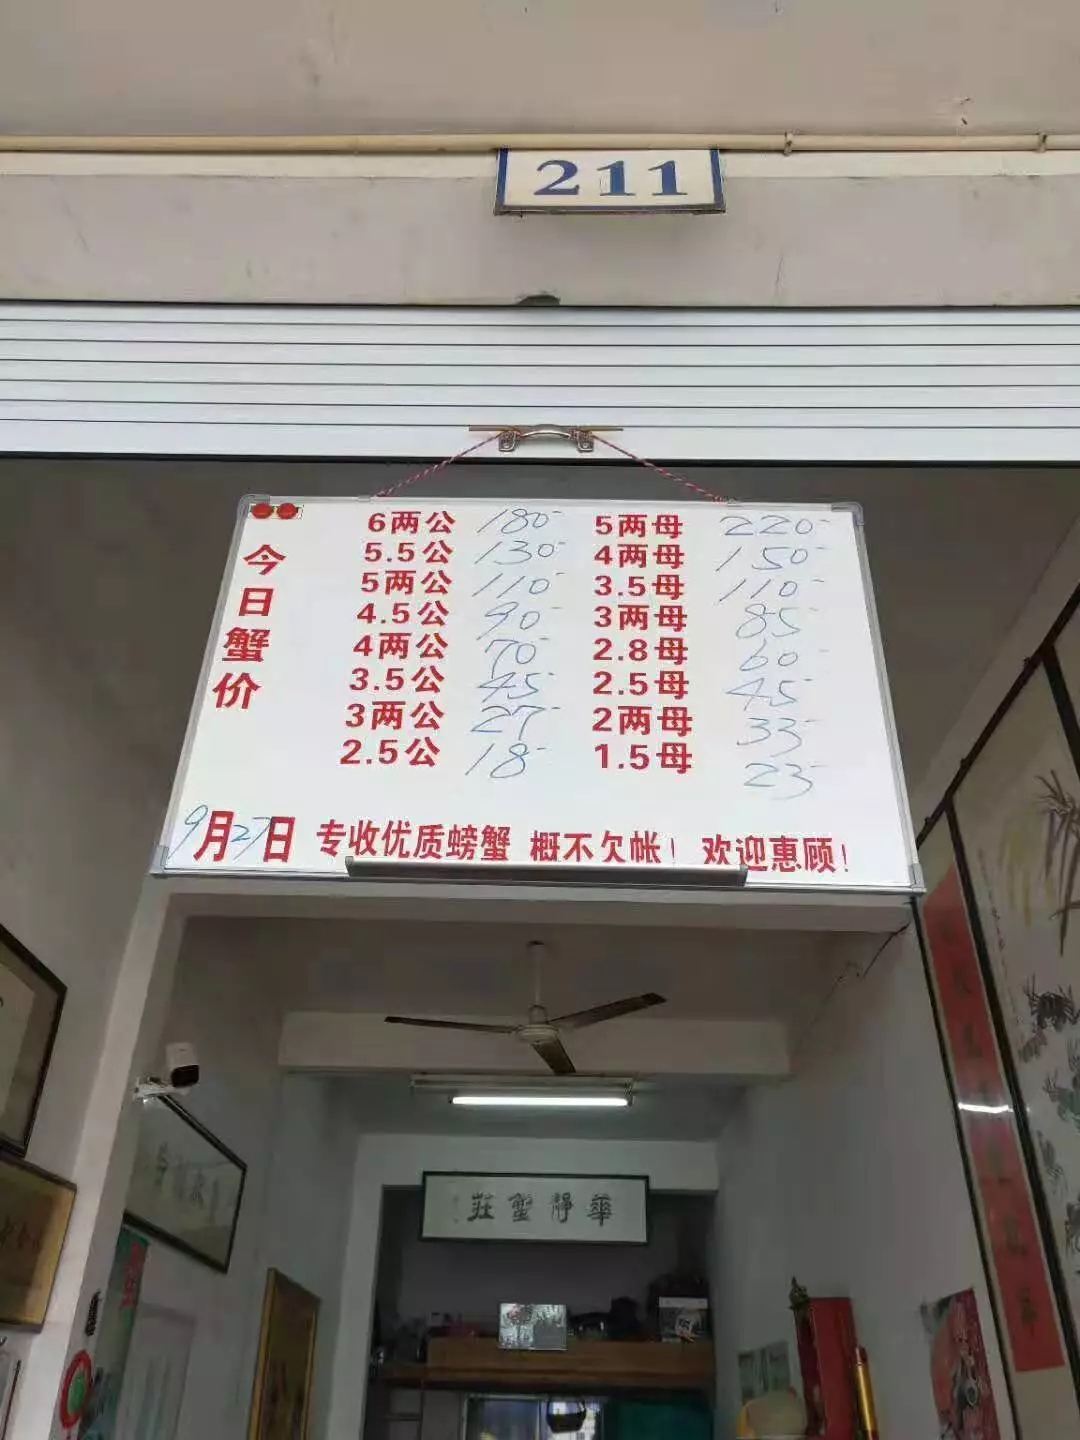 211
今日蟹价
6两公 180- 5两母 220-
5.5公 130- 4两母 150-
5两公 110- 3.5母 110-
4.5公 90- 3两母 85-
4两公 70- 2.8母 60-
3.5公 45- 2.5母 45-
3两公 27- 2两母 33-
2.5公 18- 1.5母 23-
9月27日 专收优质螃蟹 概不欠帐！欢迎惠顾！
莊蟹靜華